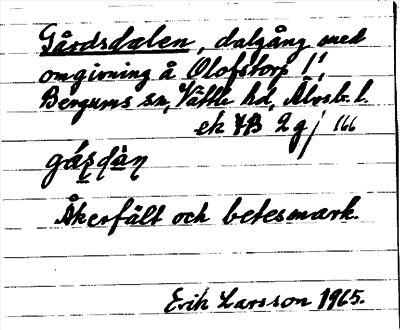 Gårdsdalen, dalgång med
omgivning å Olofstorp 1/1
Bergums sn, Vättle hd, Älvsb. l.
ek 7B 2 g j 166
gáṣḍàṇ
Åkerfält och betesmark.
Erik Larsson 1965.